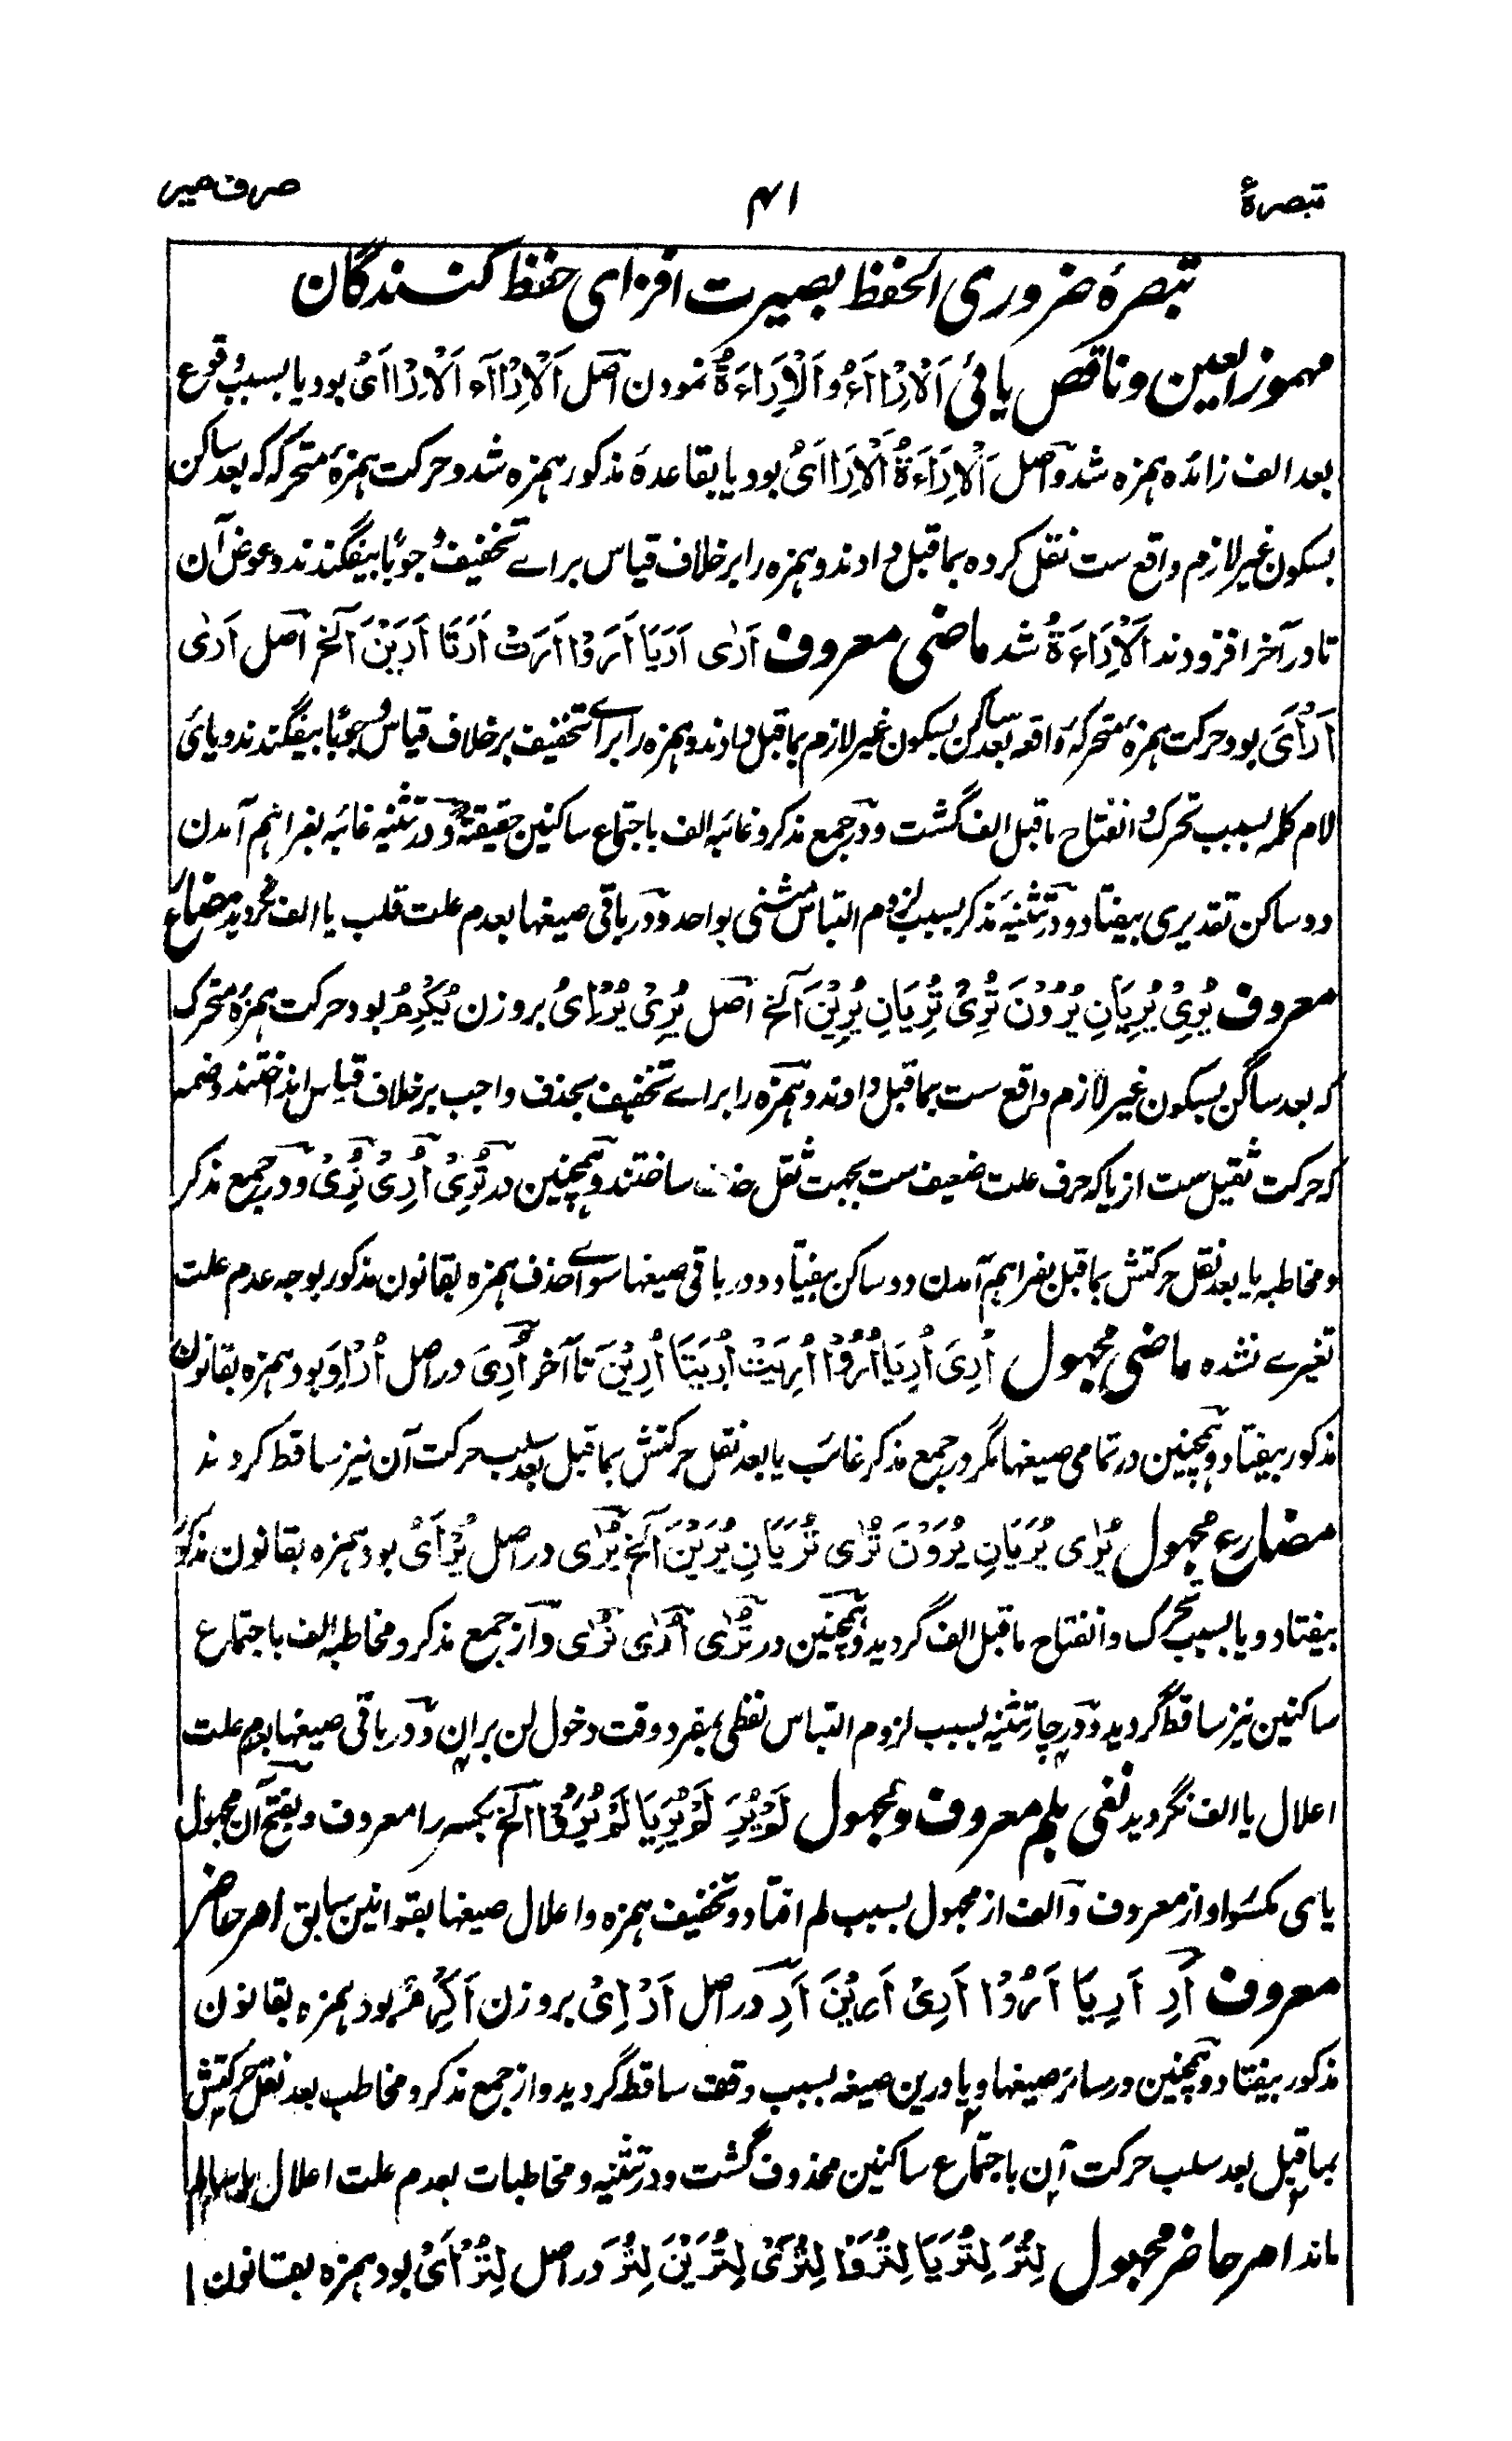 تبصرۂ
۴۱
صرف میر
تبصرۂ ضروری الحفظ بصیرت افزای حفظ کنندگان
مہموز العین و ناقص یائی اَلْاِرْاَاءُ وَاَلْاِرَاءَةُ نمودن اصل اَلْاِرْاَاء اَلْاِرْاَایُ بود یا بسبب وقوع
بعد الف زائدہ ہمزہ شد و اصل اَلْاِرَاءَةُ اَلْاِرْاَایُ بود یا بقاعدہ مذکور ہمزہ شد و حرکت ہمزۂ متحرکہ کہ بعد ساکن
بسکون غیر لازم واقع ست نقل کردہ بماقبل دادند و ہمزہ را برخلاف قیاس برای تخفیف وجوبًا بیفگندند و عوض آن
تا در آخر افزودند اَلْاِرَاءَةُ شد ماضی معروف اَرٰی اَرَیَا اَرَوْا اَرَتْ اَرَتَا اَرَیْنَ الخ اصل اَرٰی
اَرْأَیَ بود حرکت ہمزۂ متحرکہ واقعہ بعد ساکن بسکون غیر لازم بماقبل دادند و ہمزہ را برای تخفیف برخلاف قیاس وجوبًا بیفگندند و یای
لام کلمہ بسبب تحرک و انفتاح ماقبل الف گشت و در جمع مذکر و غائبہ الف باجتماع ساکنین حقیقۃً و در تثنیہ غائبہ بفراہم آمدن
دو ساکن تقدیری بیفتاد و در تثنیۂ مذکر بسبب لزوم التباس مثنی بواحد و در باقی صیغہا بعدم علت قلب یا الف نگردید مضارع
معروف یُرِیْ یُرِیَانِ یُرُوْنَ تُرِیْ تُرِیَانِ یُرِیْنَ الخ اصل یُرِیْ یُرْاِیُ بروزن یُکْرِمُ بود حرکت ہمزۂ متحرک
کہ بعد ساکن بسکون غیر لازم واقع ست بماقبل دادند و ہمزہ را برای تخفیف بحذف واجب برخلاف قیاس انداختند و ضمہ
کہ حرکت ثقیل ست از یا کہ حرف علت ضعیف ست بجہت ثقل حذف ساختند و ہمچنین در تُرِیْ اُرِیْ نُرِیْ و در جمع مذکر
و مخاطبہ یا بعد نقل حرکتش بماقبل بفراہم آمدن دو ساکن بیفتاد و در باقی صیغہا سوای حذف ہمزہ بقانون مذکور بوجہ عدم علت
تغیرے نشدہ ماضی مجہول اُرِیَ اُرِیَا اُرُوْا اُرِیَتْ اُرِیَتَا اُرِیْنَ تا آخر اُرِیَ در اصل اُرْاِیَ بود ہمزہ بقانون
مذکور بیفتاد و ہمچنین در تمامی صیغہا مگر در جمع مذکر غائب یا بعد نقل حرکتش بماقبل بعد سلب حرکت آن نیز ساقط کردند
مضارع مجہول یُرٰی یُرَیَانِ یُرَوْنَ تُرٰی تُرَیَانِ یُرَیْنَ الخ یُرٰی در اصل یُرْأَیُ بود ہمزہ بقانون مذکور
بیفتاد و یا بسبب تحرک و انفتاح ماقبل الف گردید و ہمچنین در تُرٰی اُرٰی نُرٰی و از جمع مذکر و مخاطبہ الف باجتماع
ساکنین نیز ساقط گردید و در چار تثنیہ بسبب لزوم التباس لفظی بمفرد وقت دخول لن بران و در باقی صیغہا بعدم علت
اعلال یا الف نگردید نفی بلم معروف و مجہول لَمْ یُرِ لَمْ یُرِیَا لَمْ یُرُوْا الخ بکسر را معروف و بفتح آن مجہول
یای مکسور او از معروف و الف از مجہول بسبب لم افتاد و تخفیف ہمزہ و اعلال صیغہا بقوانین سابق امر حاضر
معروف اَرِ اَرِیَا اَرُوْا اَرِیْ اَرِیْنَ اَرِ در اصل اَرْاِیْ بروزن اَکْرِمْ بود ہمزہ بقانون
مذکور بیفتاد و ہمچنین در سائر صیغہا و یا درین صیغہ بسبب وقف ساقط گردید و از جمع مذکر و مخاطب بعد نقل حرکتش
بماقبل بعد سلب حرکت آن باجتماع ساکنین محذوف گشت و در تثنیہ و مخاطبات بعدم علت اعلال یا سالم
ماند امر حاضر مجہول لِتُرَ لِتُرَیَا لِتُرَوْا لِتُرَیْ لِتُرَیْنَ لِتُرَ در اصل لِتُرْأَیْ بود ہمزہ بقانون